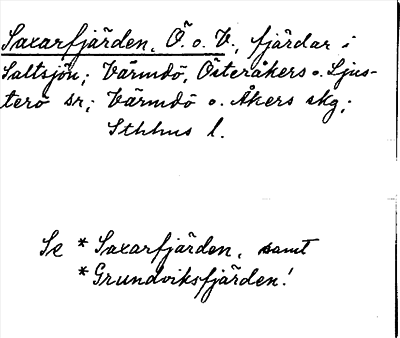 Saxarfjärden, Ö. o. V., fjärdar i
Saltsjön; Värmdö, Österåkers o. Ljus-
terö sr; Värmdö o. Åkers skg;
Sthlms l.
Se * Saxarfjärden, samt
* Grundviksfjärden!